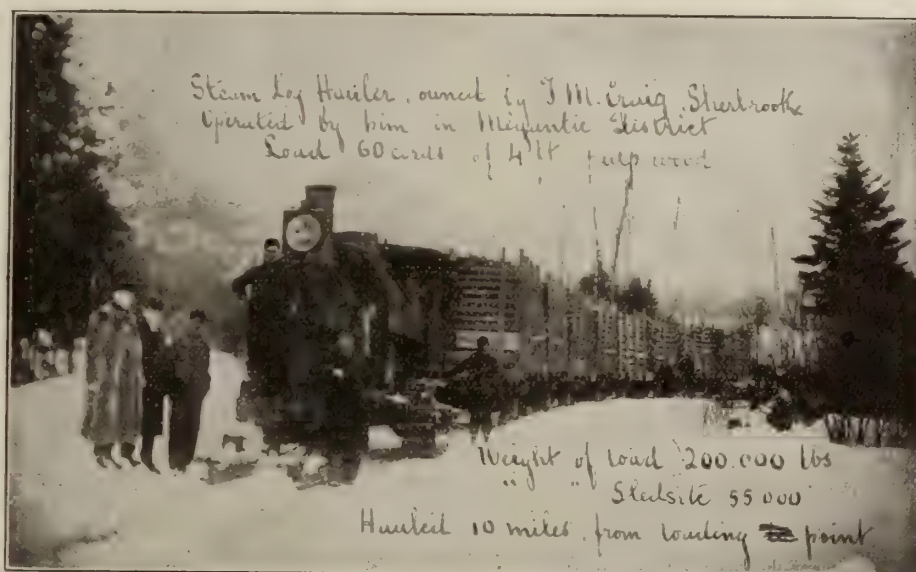 Steam Log Hauler, owned by J M. Craig Sherbrooke
Operated by him in Megantic District
Load 60 cords of 4 ft pulp wood
Weight of load 200.000 lbs
" " 55000
Hauled 10 miles, from loading point